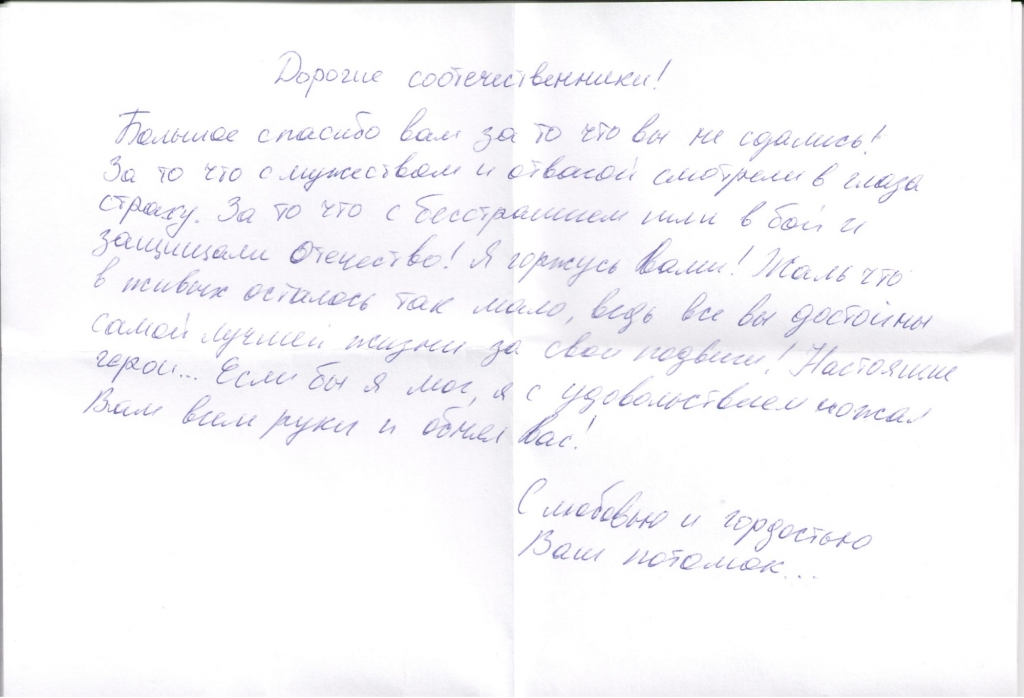 Дорогие соотечественники!
Большое спасибо вам за то что вы не сдались!
За то что с мужеством и отвагой смотрели в глаза
страху. За то что с бесстрашием шли в бой и
защищали Отечество! Я горжусь Вами! Жаль что
в живых осталось так мало, ведь все вы достойны
самой лучшей жизни за свои подвиги! Настоящие
герои... Если бы я мог, я с удовольствием пожал
Вам всем руки и обнял Вас!
С любовью и гордостью
Ваш потомок...